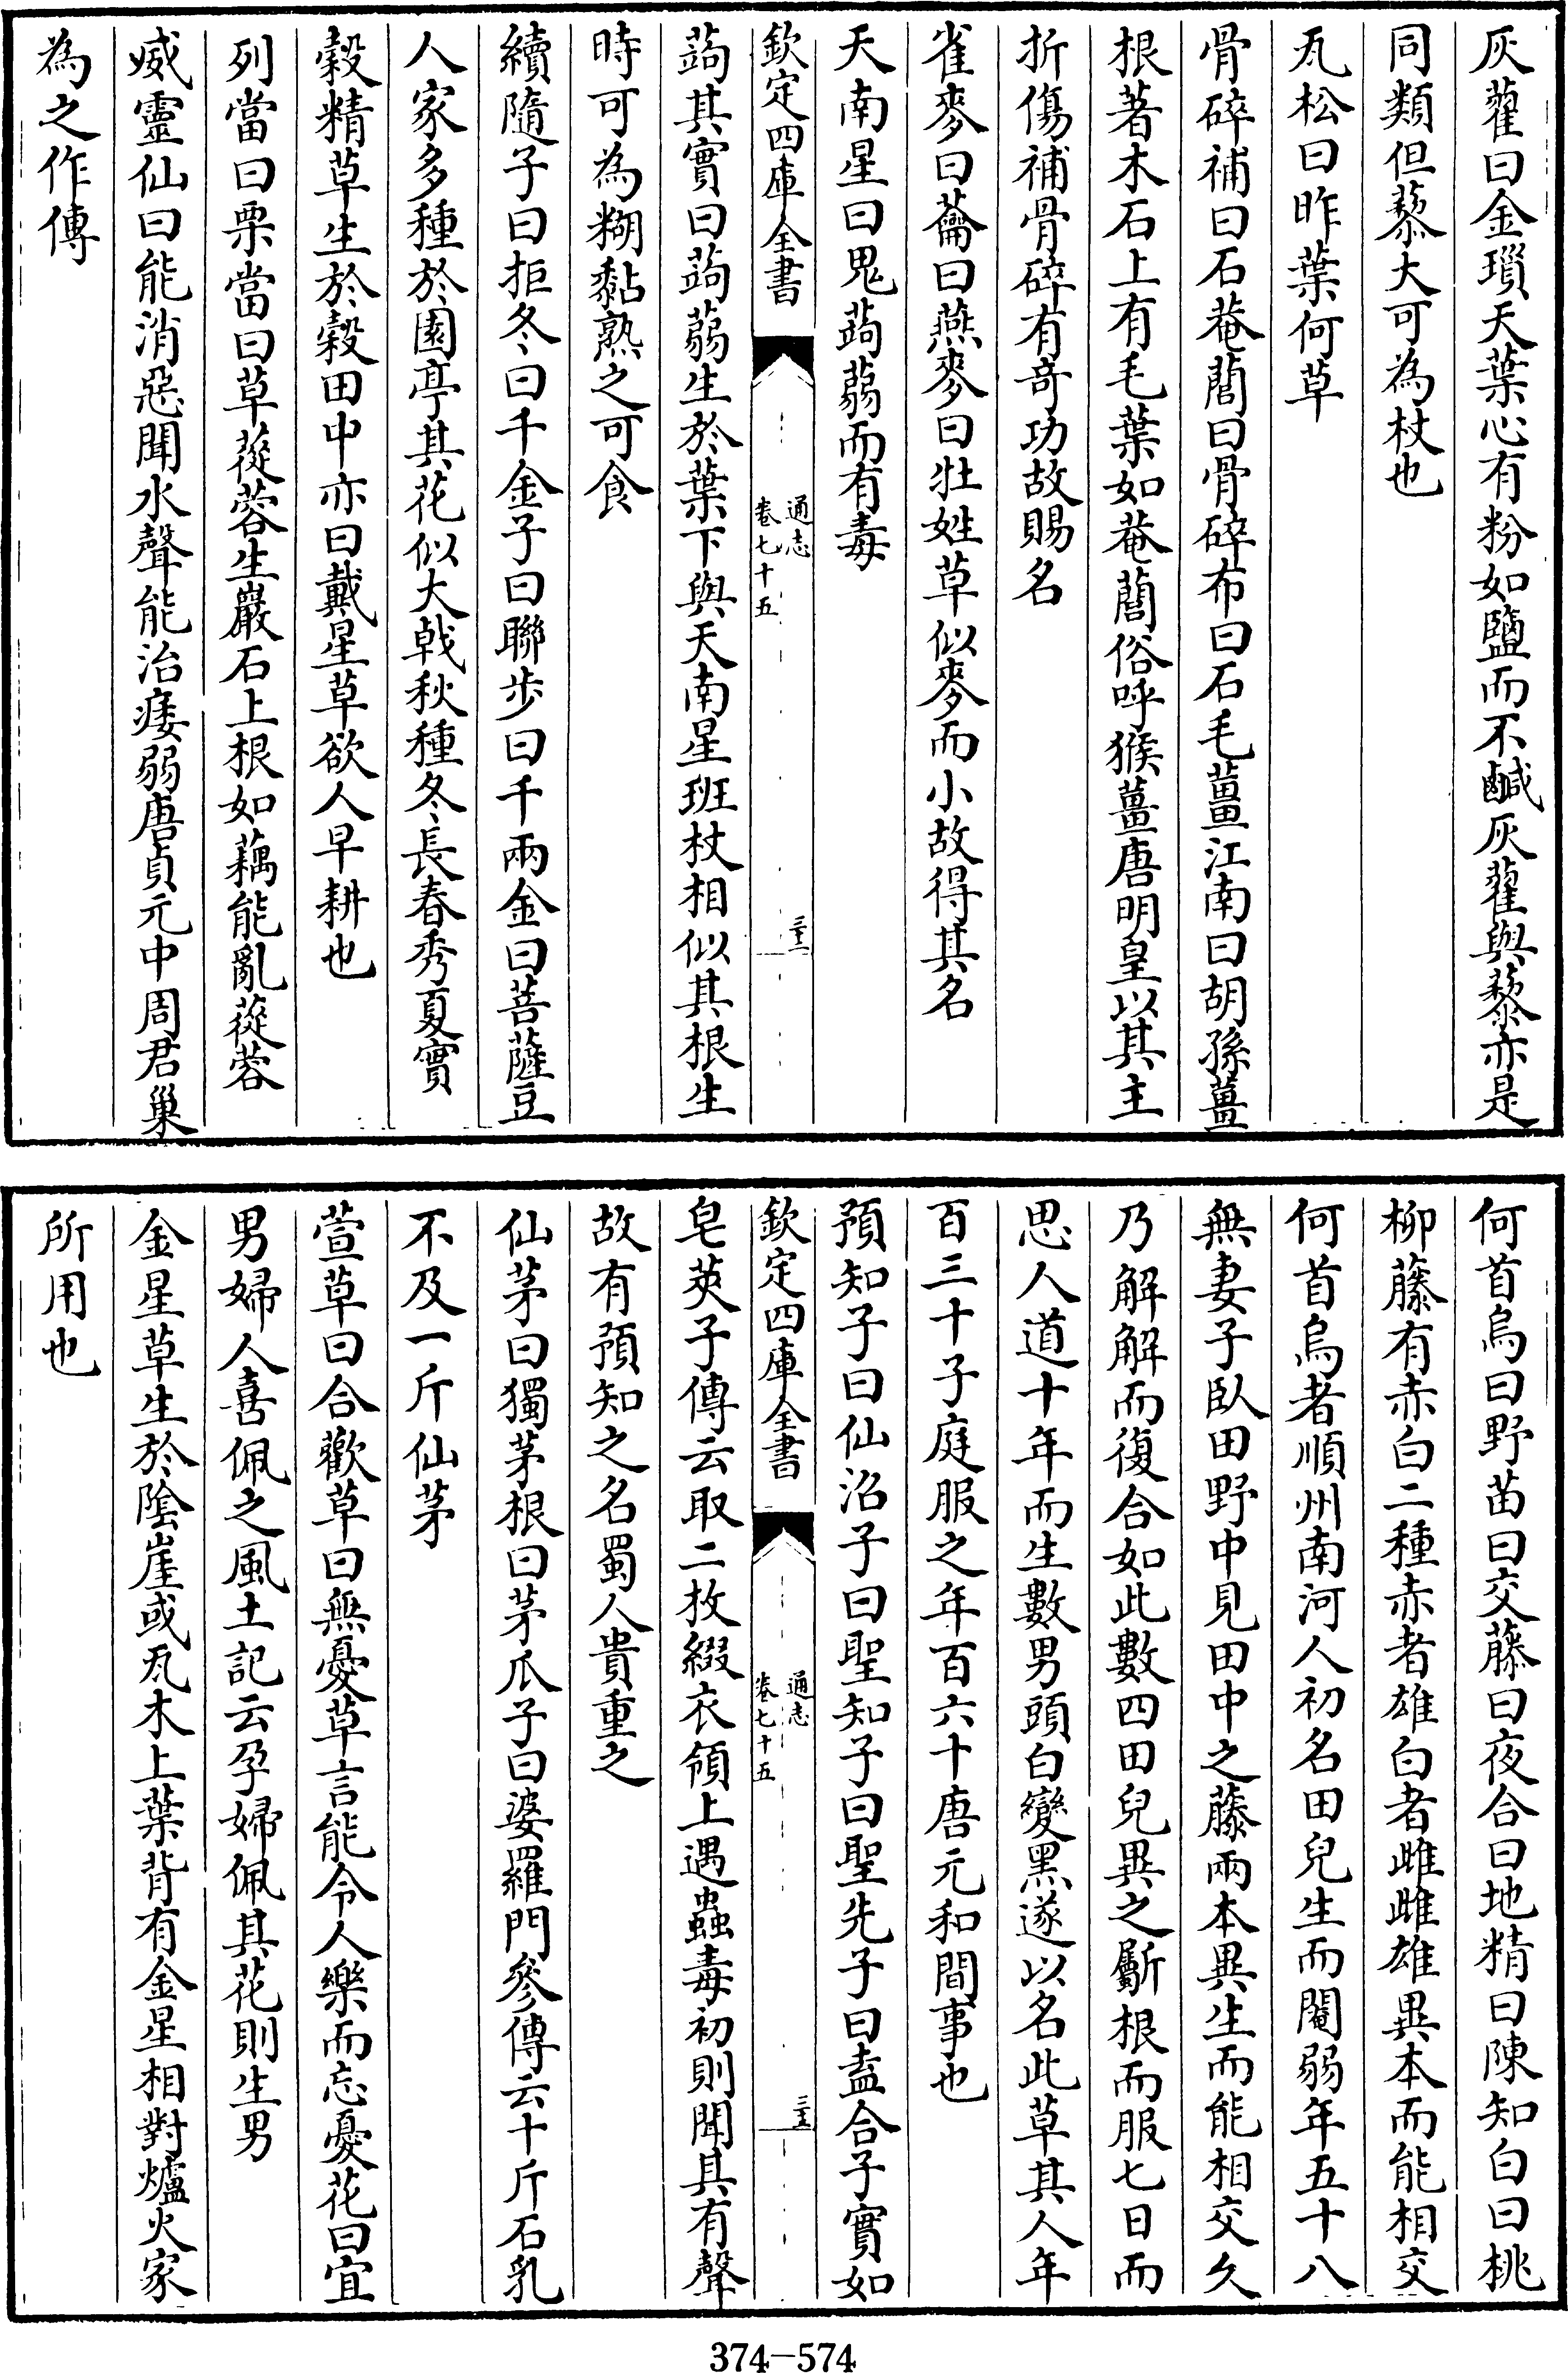 灰藋曰金瑣天葉心有粉如鹽而不鹹灰藋與藜亦是
同類但藜大可為杖也
瓦松曰昨葉何草
骨碎補曰石菴䕡曰骨碎布曰石毛薑江南曰胡孫薑
根著木石上有毛葉如菴䕡俗呼猴薑唐明皇以其主
折傷補骨碎有奇功故賜名
雀麥曰蘥曰燕麥曰牡姓草似麥而小故得其名
天南星曰鬼蒟蒻而有毒
欽定四庫全書
通志
卷七十五
三十二
蒟其實曰蒟蒻生於葉下與天南星班杖相似其根生
時可為糊黏熟之可食
續隨子曰拒冬曰千金子曰聯步曰千兩金曰菩薩豆
人家多種於園亭其花似大戟秋種冬長春秀夏實
穀精草生於穀田中亦曰戴星草欲人早耕也
列當曰栗當曰草蓯蓉生巖石上根如藕能亂蓯蓉
威靈仙曰能消惡聞水聲能治痿弱唐貞元中周君巢
為之作傳
何首烏曰野苗曰交藤曰夜合曰地精曰陳知白曰桃
柳藤有赤白二種赤者雄白者雌雌雄異本而能相交
何首烏者順州南河人初名田兒生而閹弱年五十八
無妻子臥田野中見田中之藤兩本異生而能相交久
乃解解而復合如此數四田兒異之斸根而服七日而
思人道十年而生數男頭白變黑遂以名此草其人年
百三十子庭服之年百六十唐元和間事也
預知子曰仙沼子曰聖知子曰聖先子曰盍合子實如
欽定四庫全書
通志
卷七十五
三十三
皂莢子傳云取二枚綴衣領上遇蟲毒初則聞其有聲
故有預知之名蜀人貴重之
仙茅曰獨茅根曰茅瓜子曰婆羅門參傳云十斤石乳
不及一斤仙茅
萱草曰合歡草曰無憂草言能令人樂而忘憂花曰宜
男婦人喜佩之風土記云孕婦佩其花則生男
金星草生於陰崖或瓦木上葉背有金星相對爐火家
所用也
374-574